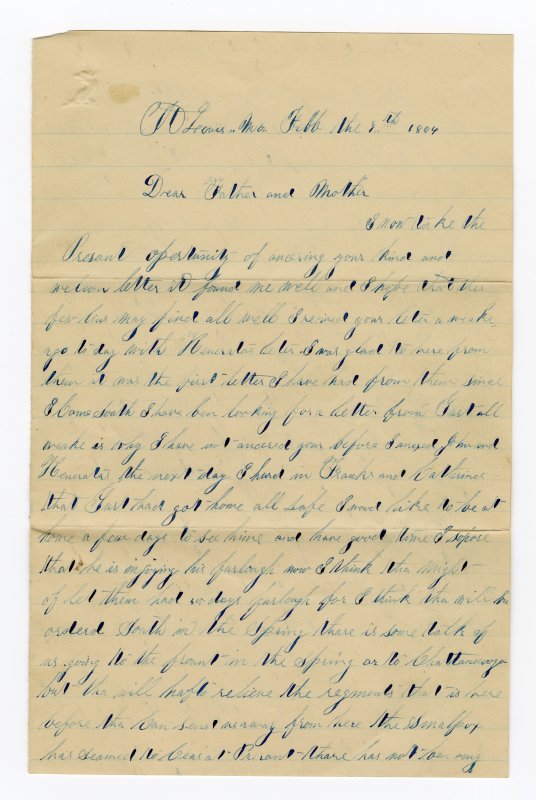 St Louis, Mo Febb the 8th 1864
Dear Father and Mother
I now take the
Presant opertunity of ancering your kind and
welcom letter it found me well and I hope that this
few lins may find all well I reived your leter a weake
ago to day with Heneratas leter I was glad to here from
them it was the first letter I have had from them since
I Come South I have ben looking for a letter from Gust all
weake is way I have not ancered your before I ancered Jim and
Heneratas the next day I hurd in Franks and Catherines
that Gust had got home all safe I woud like to be at
home a few days to see hime and have good time I sopose
that he is injoying his furlough now I think tha might
of let them had 60 days furlough for I think tha will be
orderd South in the Spring thare is some talk of
us going to the frount in the spring or to Chattannooga
but tha will hafto relieve the regments that is here
before tha Can send us away from here the Smallpox
has seamed to Ceas at Presant thare has not ben eny